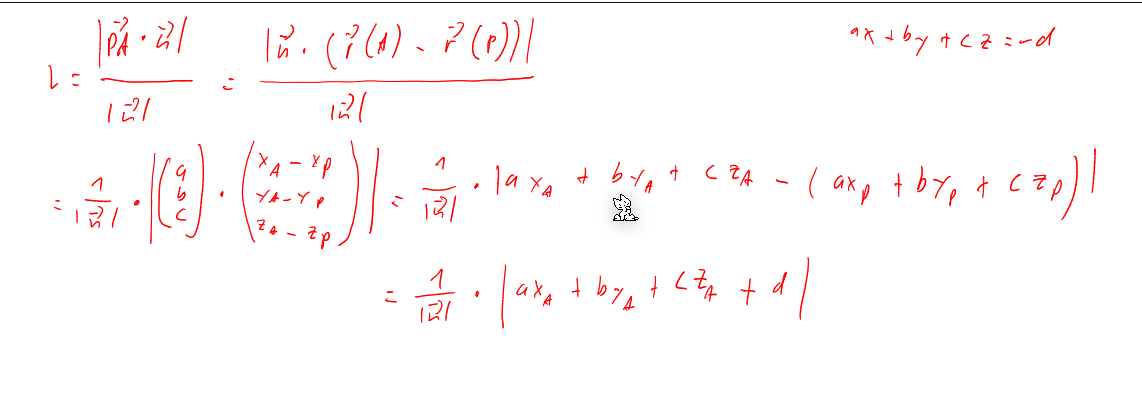 l = |P⃗A · n⃗| / |n⃗| = |n⃗ · (r⃗(A) - r⃗(P))| / |n⃗|
ax + by + cz = -d
= 1/|n⃗| · |(a b c) · (x_A - x_P y_A - y_P z_A - z_P)| = 1/|n⃗| · |ax_A + by_A + cz_A - (ax_P + by_P + cz_P)|
= 1/|n⃗| · |ax_A + by_A + cz_A + d|